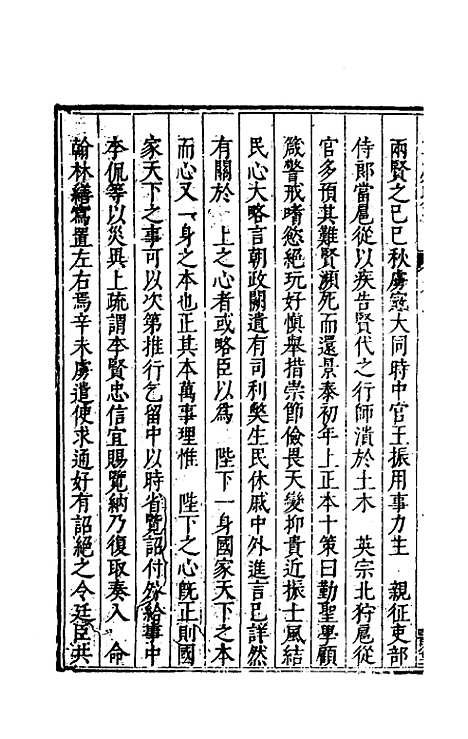 兩賢之己巳秋虜寇大同時中官王振用事力生　親征吏部
侍郎當扈從以疾告賢代之行師潰於土木　英宗北狩扈從
官多預其難賢瀕死而還景泰初年上正本十策曰勤聖學顧
箴警戒嗜慾絕玩好慎舉措崇節儉畏天變抑貴近振士風結
民心大略言朝政闕遺有司利獘生民休戚中外進言已詳然
有關於　上之心者或略臣以爲　陛下一身國家天下之本
而心又一身之本也正其本萬事理惟　陛下之心旣正則國
家天下之事可以次第推行乞留中以時省覽詔付外給事中
李侃等以災異上疏謂本賢忠信宜賜覽納乃復取奏入　命
翰林繕寫置左右焉辛未虜遣使求通好有詔絕之令廷臣共